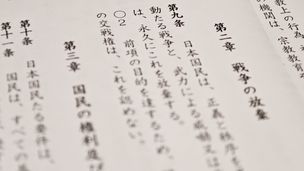 教上の行為
の機関は、宗教教育
第二章 戦争の放棄
第九条 日本国民は、正義と秩序を
動たる戦争と、武力による威嚇又は
は、永久にこれを放棄する。
○2 前項の目的を達するため、
の交戦権は、これを認めない。
第三章 国民の権利及び
第十条 日本国民たる要件は、
第十一条 国民は、すべての基